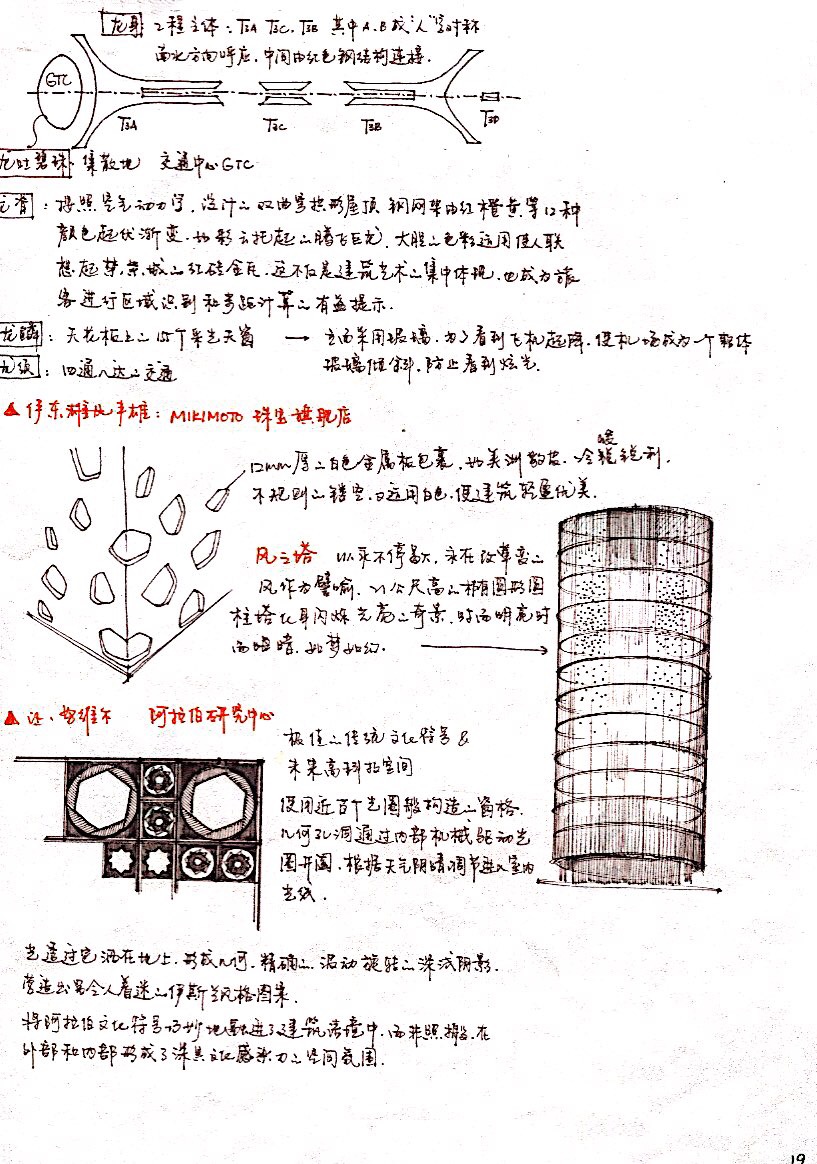 龙身 工程主体:T3A T3C、T3B 其中A、B成"人"字对称
南北方向呼应,中间由红色钢结构连接.
GTC
T3A
T3C
T3B
T3D
龙吐碧珠、集散地 交通中心GTC
龙脊:按照空气动力学,设计的双曲穹拱形屋顶 钢网架由红橙黄等12种
颜色起伏渐变,如彩云托起的腾飞巨龙,大胆的色彩运用使人联
想起紫禁城的红砖金瓦,这不仅是建筑艺术的集中体现,也成为旅
客进行区域识别和步距计算的有益提示.
龙鳞:天花板上的155个采光天窗 → 立面采用玻璃,为了看到飞机起降,使机场成为一个整体
玻璃倾斜,防止看到炫光.
龙须:四通八达的交通
▲伊东 丰雄:MIKIMOTO 珠宝旗舰店
12mm厚的白色金属板包裹,如美洲散落,冷 锐利,
不规则的镂空,及运用白色,使建筑轻盈优美.
风之塔 以永不停歇,永在改革变的
风作为譬喻,21公尺高的椭圆形圆
柱塔化身闪烁光亮的奇景,时而明亮时
而暗暗,如梦如幻.
▲让·努维尔 阿拉伯研究中心
极值的传统文化符号&
未来高科技空间
使用近百个光圈般构造的窗格.
几何孔洞通过内部机械驱动光
圈开阖,根据天气阴晴调节进入室内
光线.
光透过它洒在地上,形成几何,精确的,滚动旋转的深浅阴影.
营造出另令人着迷的伊斯兰风格图案.
将阿拉伯文化符号巧妙地融进了建筑语境中,而非照搬,在
外部和内部形成了深具文化感染力的空间氛围.
19